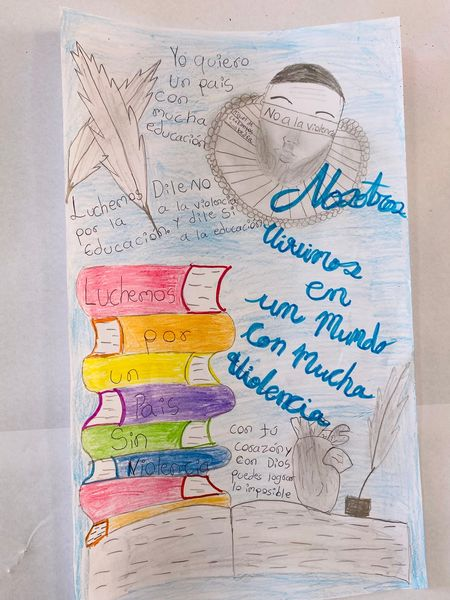 Yo quiero
un pais
con
mucha
educación
No a la violencia
Luchemos
por la
Educación.
Dile No
a la violencia
Y dile Si
a la educación
Nosotros
Vivimos
en
un Mundo
Con Mucha
Violencia
Luchemos
por
un
Pais
Sin
Violencia
con tú
corazón y
con Dios
puedes lograr
lo imposible